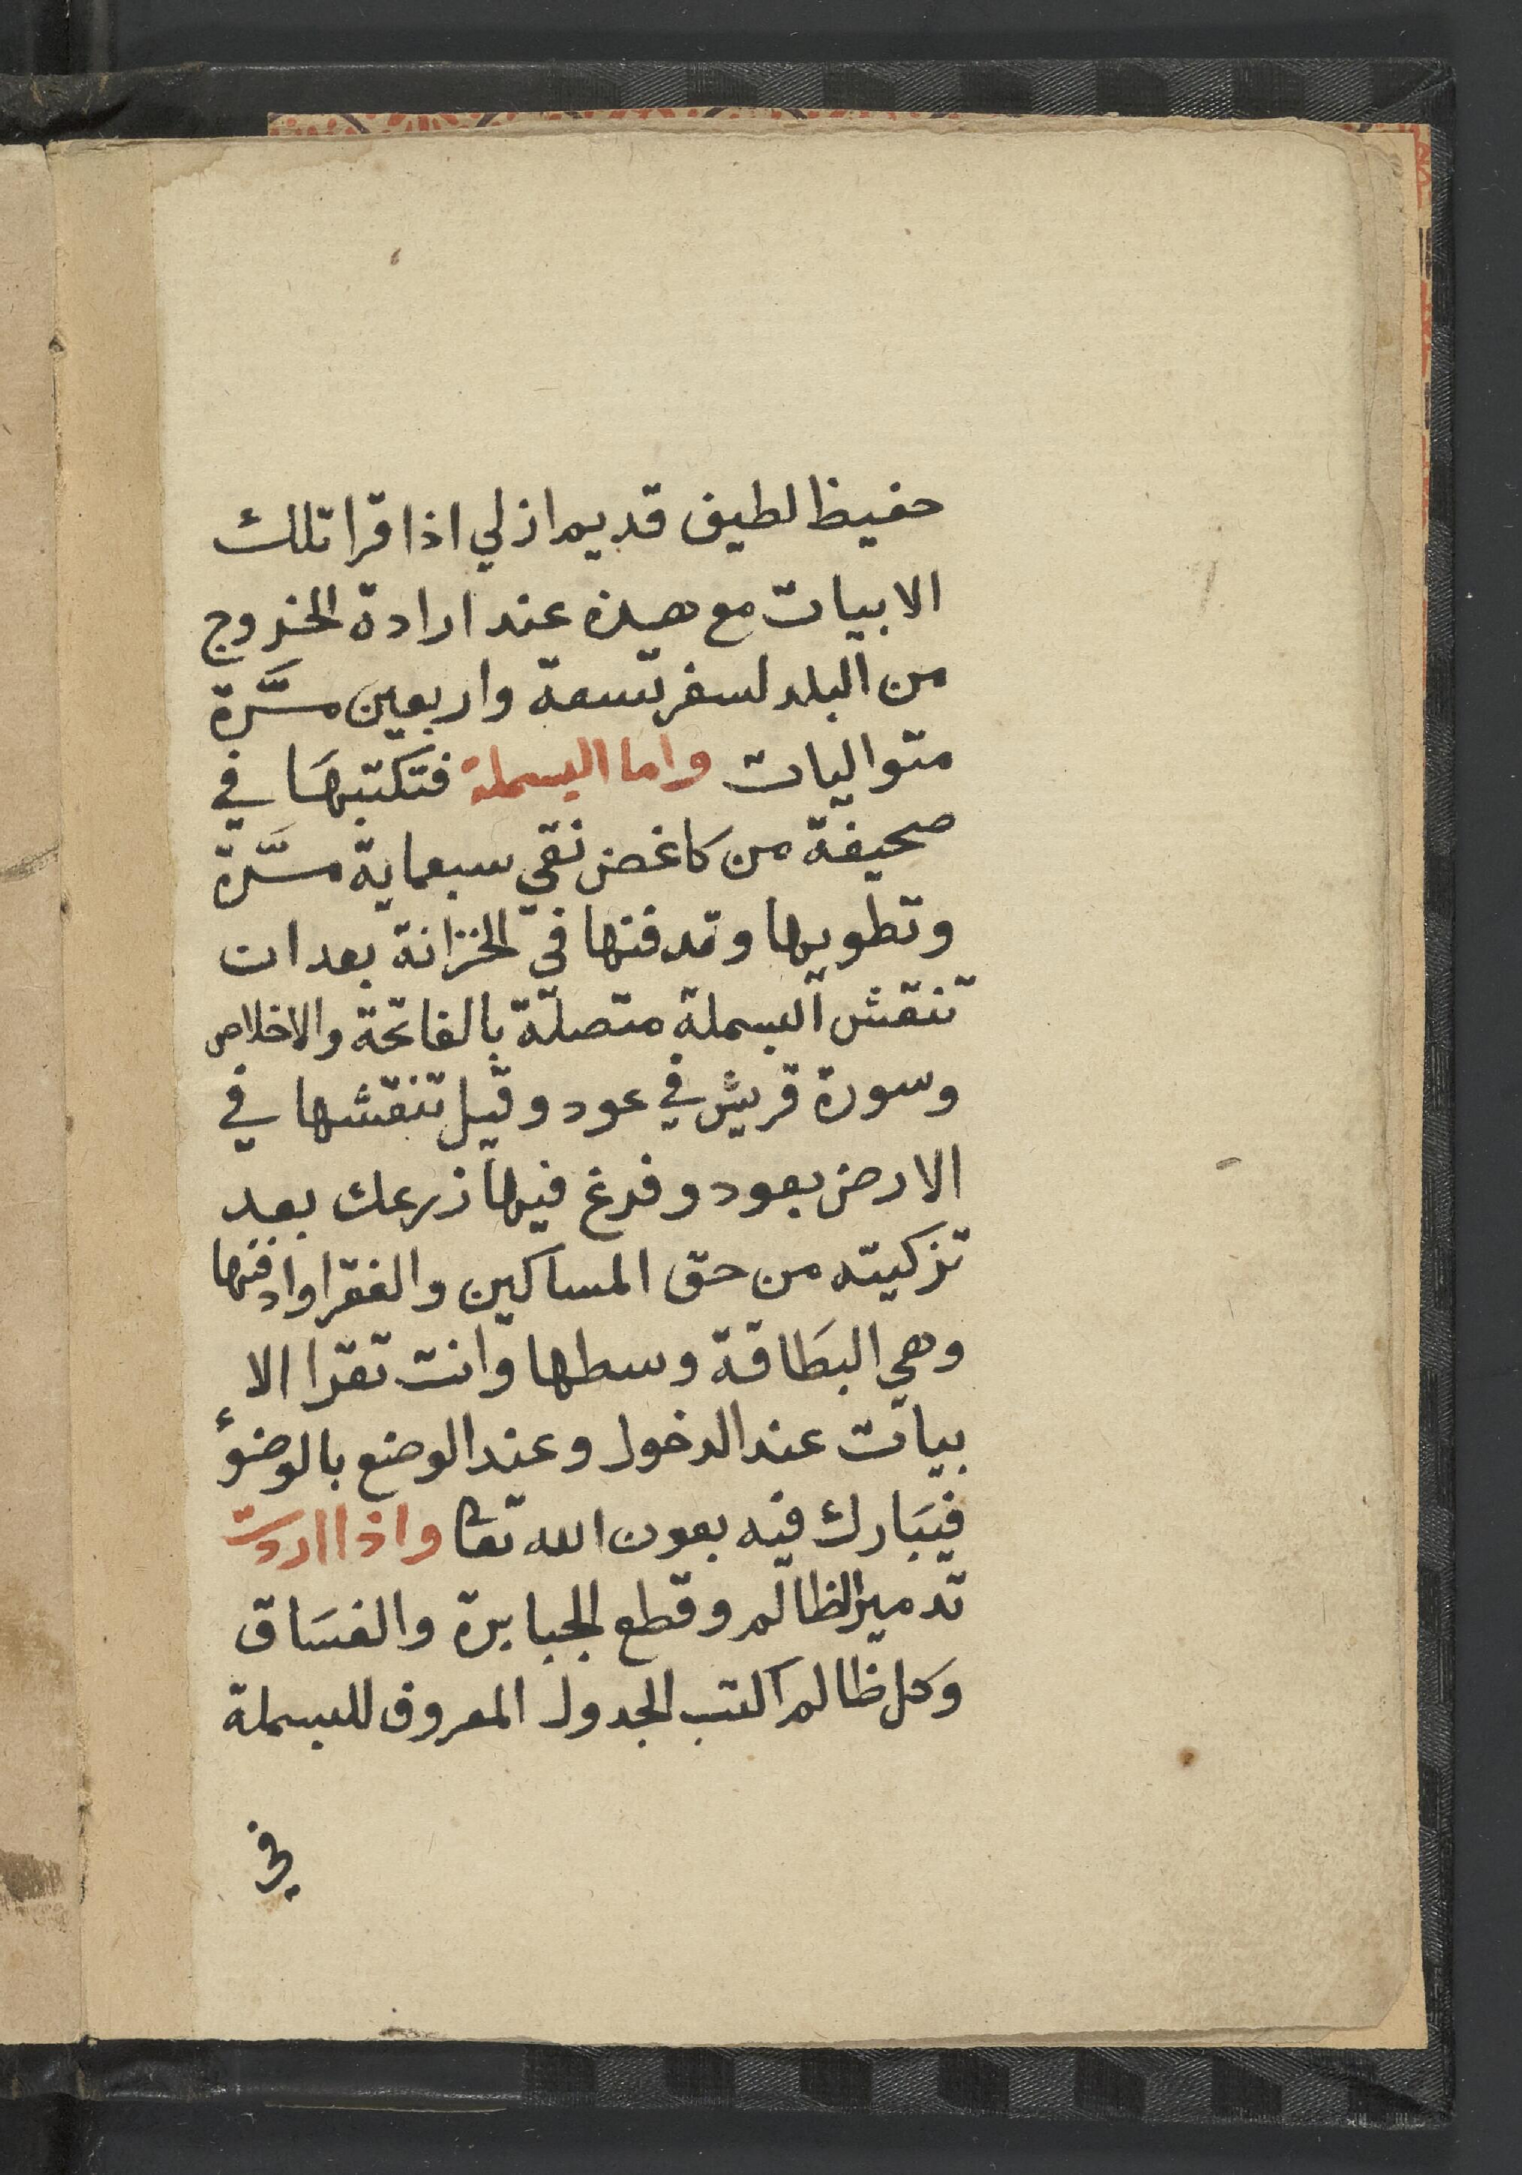 حفيظ لطيف قديم ازلي اذا قرا تلك
الابيات مع هذه عند ارادة الخروج
من البلد لسفر تسعة واربعين مرَّة
متواليات واما البسملة فتكتبهَا في
صحيفة من كاغض نقي سبعماية مرَّة
وتطويها وتدفنها في الخزانة بعد ان
تنقش البسملة متصلة بالفاتحة والاخلاص
وسورة قريش في عود وقيل تنقشها في
الارض بعود وفرغ فيها زرعك بعد
تزكيته من حق المساكين والفقرا وادفنها
وهي البطَاقة وسطها وانت تقرا الا
بيات عند الدخول وعند الوضع بالوضوء
فيبَارك فيه بعون الله تعا واذا اردت
تدمير الظالم وقطع الجبابرة والفسَاق
وَكل ظالم اكتب الجدول المعروف للبسملة
في